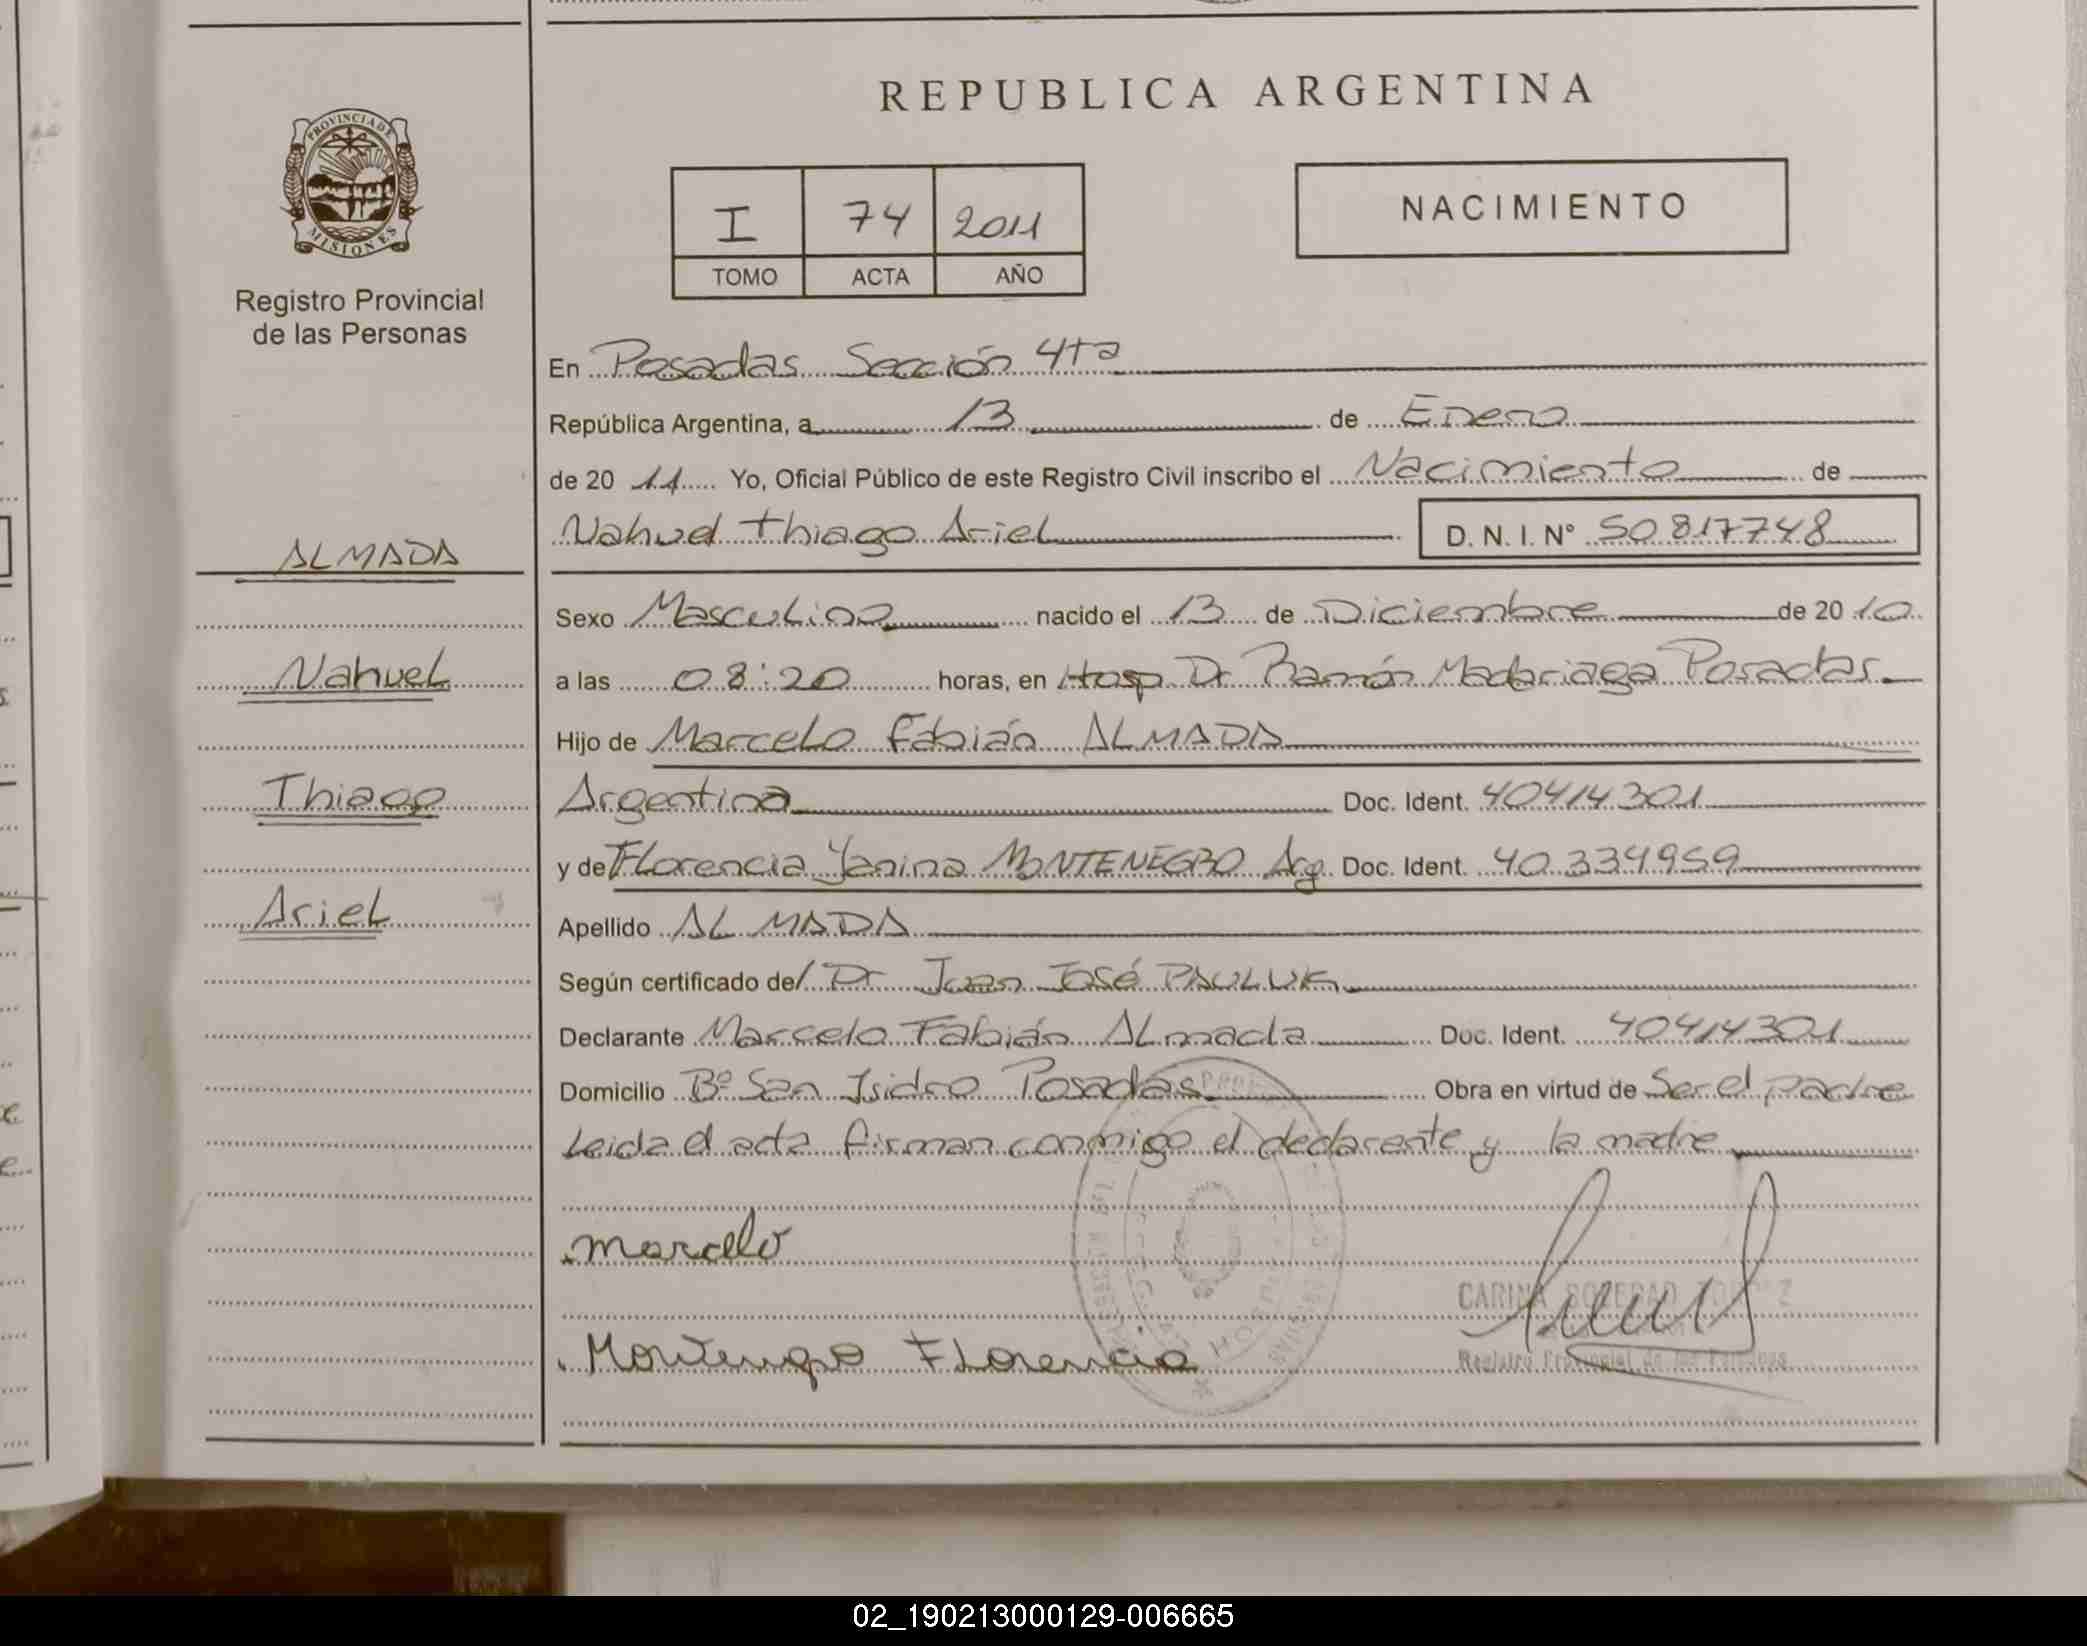 REPUBLICA ARGENTINA
PROVINCIA DE
MISIONES
Registro Provincial
de las Personas
I 74 2011
TOMO ACTA AÑO
NACIMIENTO
En Posadas Sección 4ta
República Argentina, a 13 de Enero
de 20 11 Yo, Oficial Público de este Registro Civil inscribo el Nacimiento de
Nahuel Thiago Ariel D. N. I. N° 50.817748
ALMADA
Nahuel
Thiago
Ariel
Sexo Masculino nacido el 13 de Diciembre de 20 10
a las 08:20 horas, en Hosp Dr Ramón Madariaga Posadas
Hijo de Marcelo Fabián ALMADA
Argentina Doc. Ident. 40414301
y de Florencia Yanina MONTENEGRO Arg. Doc. Ident. 40.334959
Apellido ALMADA
Según certificado de/ Dr Juan José PAULUK
Declarante Marcelo Fabián ALmada Doc. Ident. 40414301
Domicilio Bº San Isidro Posadas Obra en virtud de Ser el padre
Leida el acta firman conmigo el declarante y la madre
Marcelo
CARINA SOLEDAD
Registro Provincial de las Personas
Montenegro Florencia
02_190213000129-006665